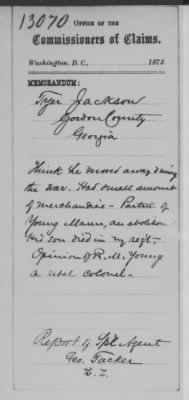 13070 OFFICE OF THE
Commissioners of Claims.
Washington, D. C., 1872
MEMORANDUM:
Tyer Jackson
Gordon County
Georgia
Think he moved away during
the war. Had small amount
of merchandise - Partner of
Young Mann, an abolition
His son died in my regt.
Opinion of R. M. Young
a rebel colonel.
Report of Spl Agent
Geo. Tucker